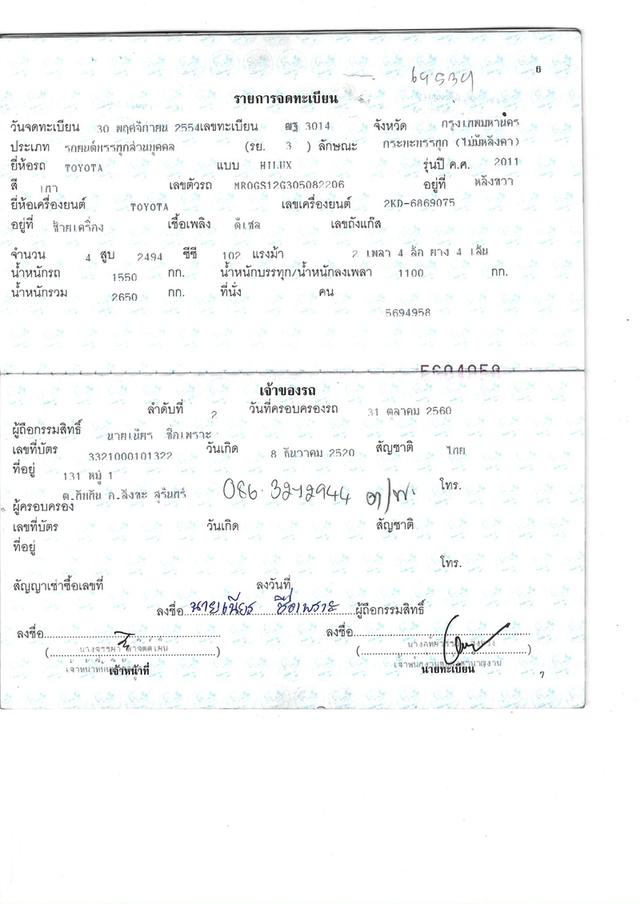 69534
6
รายการจดทะเบียน
วันจดทะเบียน 30 พฤศจิกายน 2554 เลขทะเบียน ฒฐ 3014 จังหวัด กรุงเทพมหานคร
ประเภท รถยนต์บรรทุกส่วนบุคคล (รย. 3 ) ลักษณะ กระบะบรรทุก (ไม่มีหลังคา)
ยี่ห้อรถ TOYOTA แบบ HILUX รุ่นปี ค.ศ. 2011
สี เทา เลขตัวรถ MR0GS12G305082206 อยู่ที่ หลังขวา
ยี่ห้อเครื่องยนต์ TOYOTA เลขเครื่องยนต์ 2KD-6869075
อยู่ที่ ซ้ายเครื่อง เชื้อเพลิง ดีเซล เลขถังแก๊ส
จำนวน 4 สูบ 2494 ซีซี 102 แรงม้า 2 เพลา 4 ล้อ ยาง 4 เส้น
น้ำหนักรถ 1550 กก. น้ำหนักบรรทุก/น้ำหนักลงเพลา 1100 กก.
น้ำหนักรวม 2650 กก. ที่นั่ง คน
5694958
5694958
เจ้าของรถ
ลำดับที่ 2 วันที่ครอบครองรถ 31 ตุลาคม 2560
ผู้ถือกรรมสิทธิ์ นายเนียร ชื่อเพราะ
เลขที่บัตร 3321000101322 วันเกิด 8 ธันวาคม 2520 สัญชาติ ไทย
ที่อยู่ 131 หมู่ 1 โทร.
ต.กังแอน อ.ลังขะ สุรินทร์ 086-3272944
ผู้ครอบครอง
เลขที่บัตร วันเกิด สัญชาติ
ที่อยู่
โทร.
สัญญาเช่าซื้อเลขที่ ลงวันที่
ลงชื่อ นายเนียร ชื่อเพราะ ผู้ถือกรรมสิทธิ์
ลงชื่อ ลงชื่อ
เจ้าหน้าที่ นายทะเบียน
7